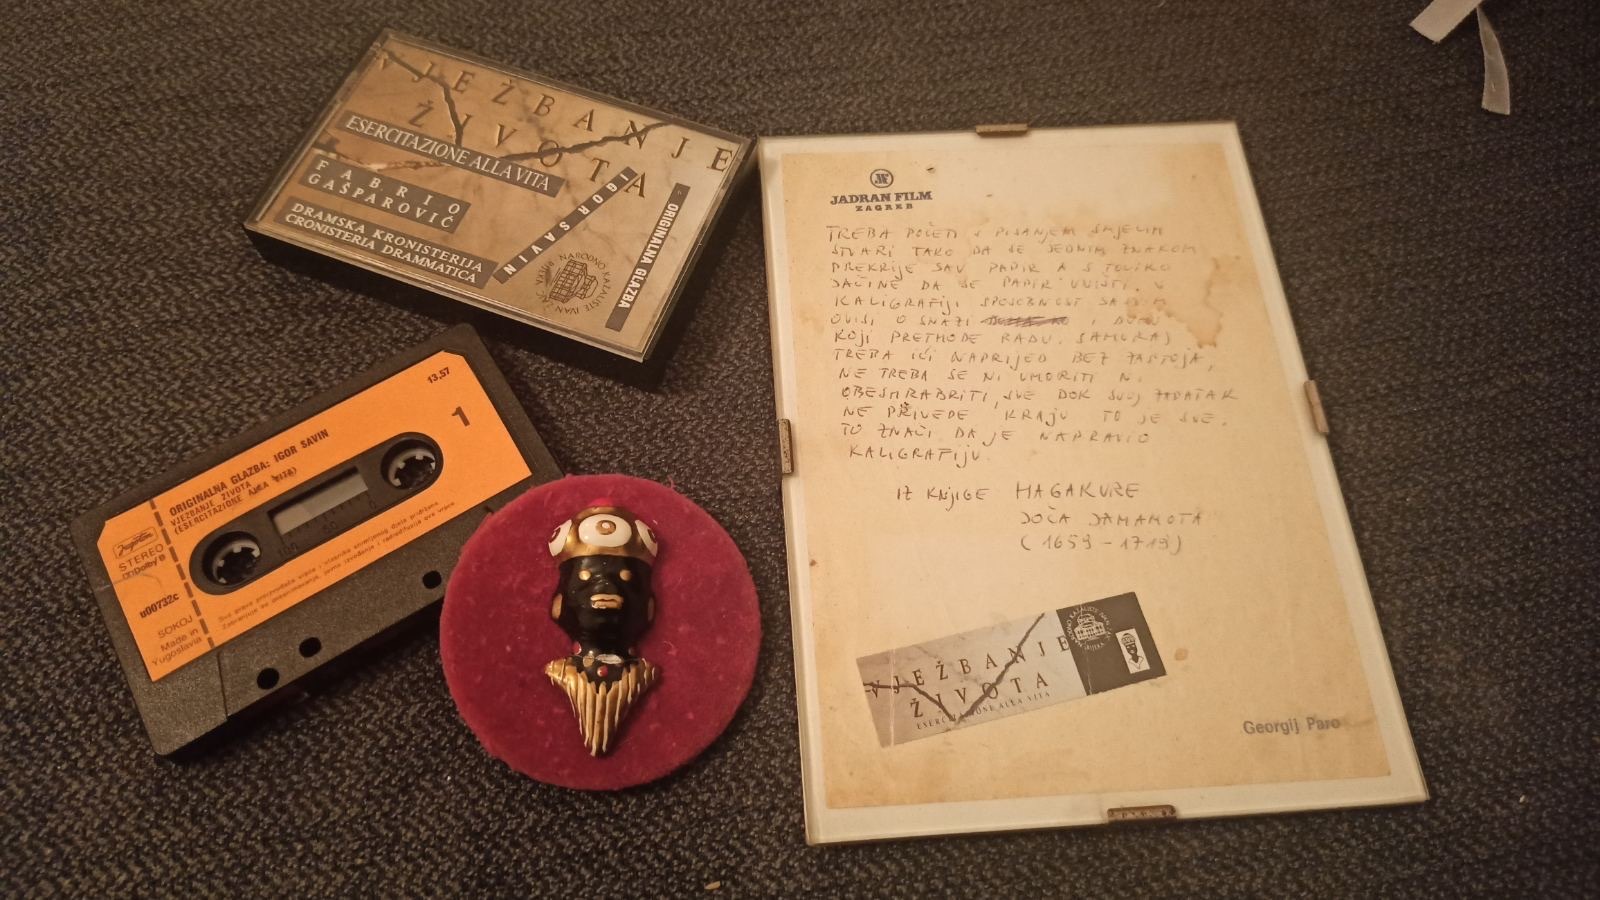 VJEŽBANJE
ŽIVOTA
ESERCITAZIONE ALLA VITA
FABRIO
GAŠPAROVIĆ
DRAMSKA KRONISTERIJA
CRONISTERIA DRAMMATICA
IGOR SAVIN
ORIGINALNA GLAZBA
NARODNO KAZALIŠTE IVAN
13,57
1
ORIGINALNA GLAZBA: IGOR SAVIN
VJEŽBANJE ŽIVOTA
(ESERCITAZIONE ALLA VITA)
Jugoton
STEREO
Dolby B
u00732c
SOKOJ
Made in
Yugoslavia
100 50 0
Sva prava proizvođača vrpce i vlasnika snimljenog djela pridržana.
Zabranjuje se presnimavanje, javno izvođenje i radiodifuzija ove vrpce.
JADRAN FILM
ZAGREB
TREBA POČETI S PISANJEM SMJELIH
STVARI TAKO DA SE JEDNIM ZNAKOM
PREKRIJE SAV PAPIR A S TOLIKO
JAČINE DA SE PAPIR UNIŠTI. U
KALIGRAFIJI SPOSOBNOST
OVISI O SNAZI I
KOJI PRETHODE RADU. SAMURAJ
TREBA IĆI NAPRIJED BEZ ZASTOJA,
NE TREBA SE NI UMORITI NI
OBESHRABRITI, SVE DOK SVOJ ZADATAK
NE PRIVEDE KRAJU TO JE SVE.
TO ZNAČI DA JE NAPRAVIO
KALIGRAFIJU.
IZ KNJIGE HAGAKURE
JOČA JAMAMOTA
(1659-1719)
VJEŽBANJE
ŽIVOTA
ESERCITAZIONE ALLA VITA
Georgij Paro